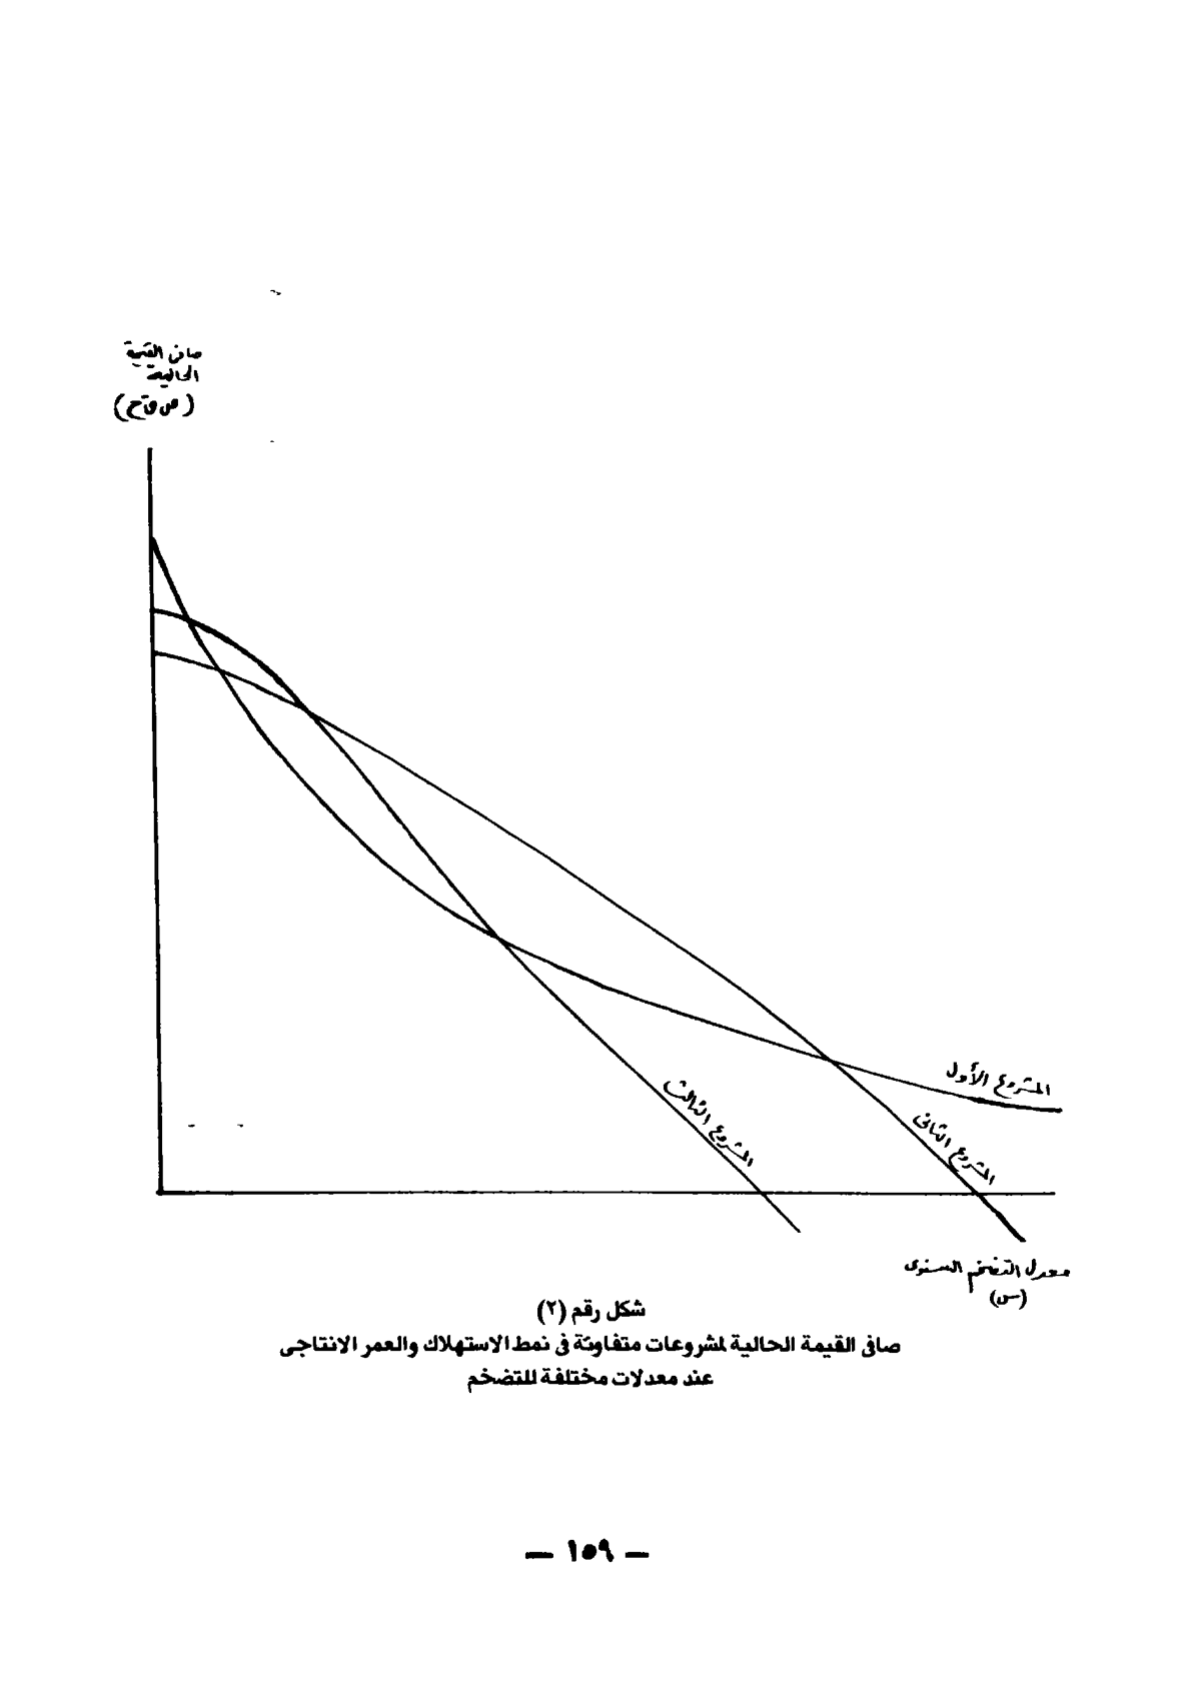 صافى القيمة
الحالية
(ص ق ح)
المشروع الأول
المشروع الثانى
المشروع الثالث
معدل التضخم السنوى
(س)
شكل رقم (٢)
صافى القيمة الحالية لمشروعات متفاوتة فى نمط الاستهلاك والعمر الانتاجى
عند معدلات مختلفة للتضخم
— ١٥٩ —